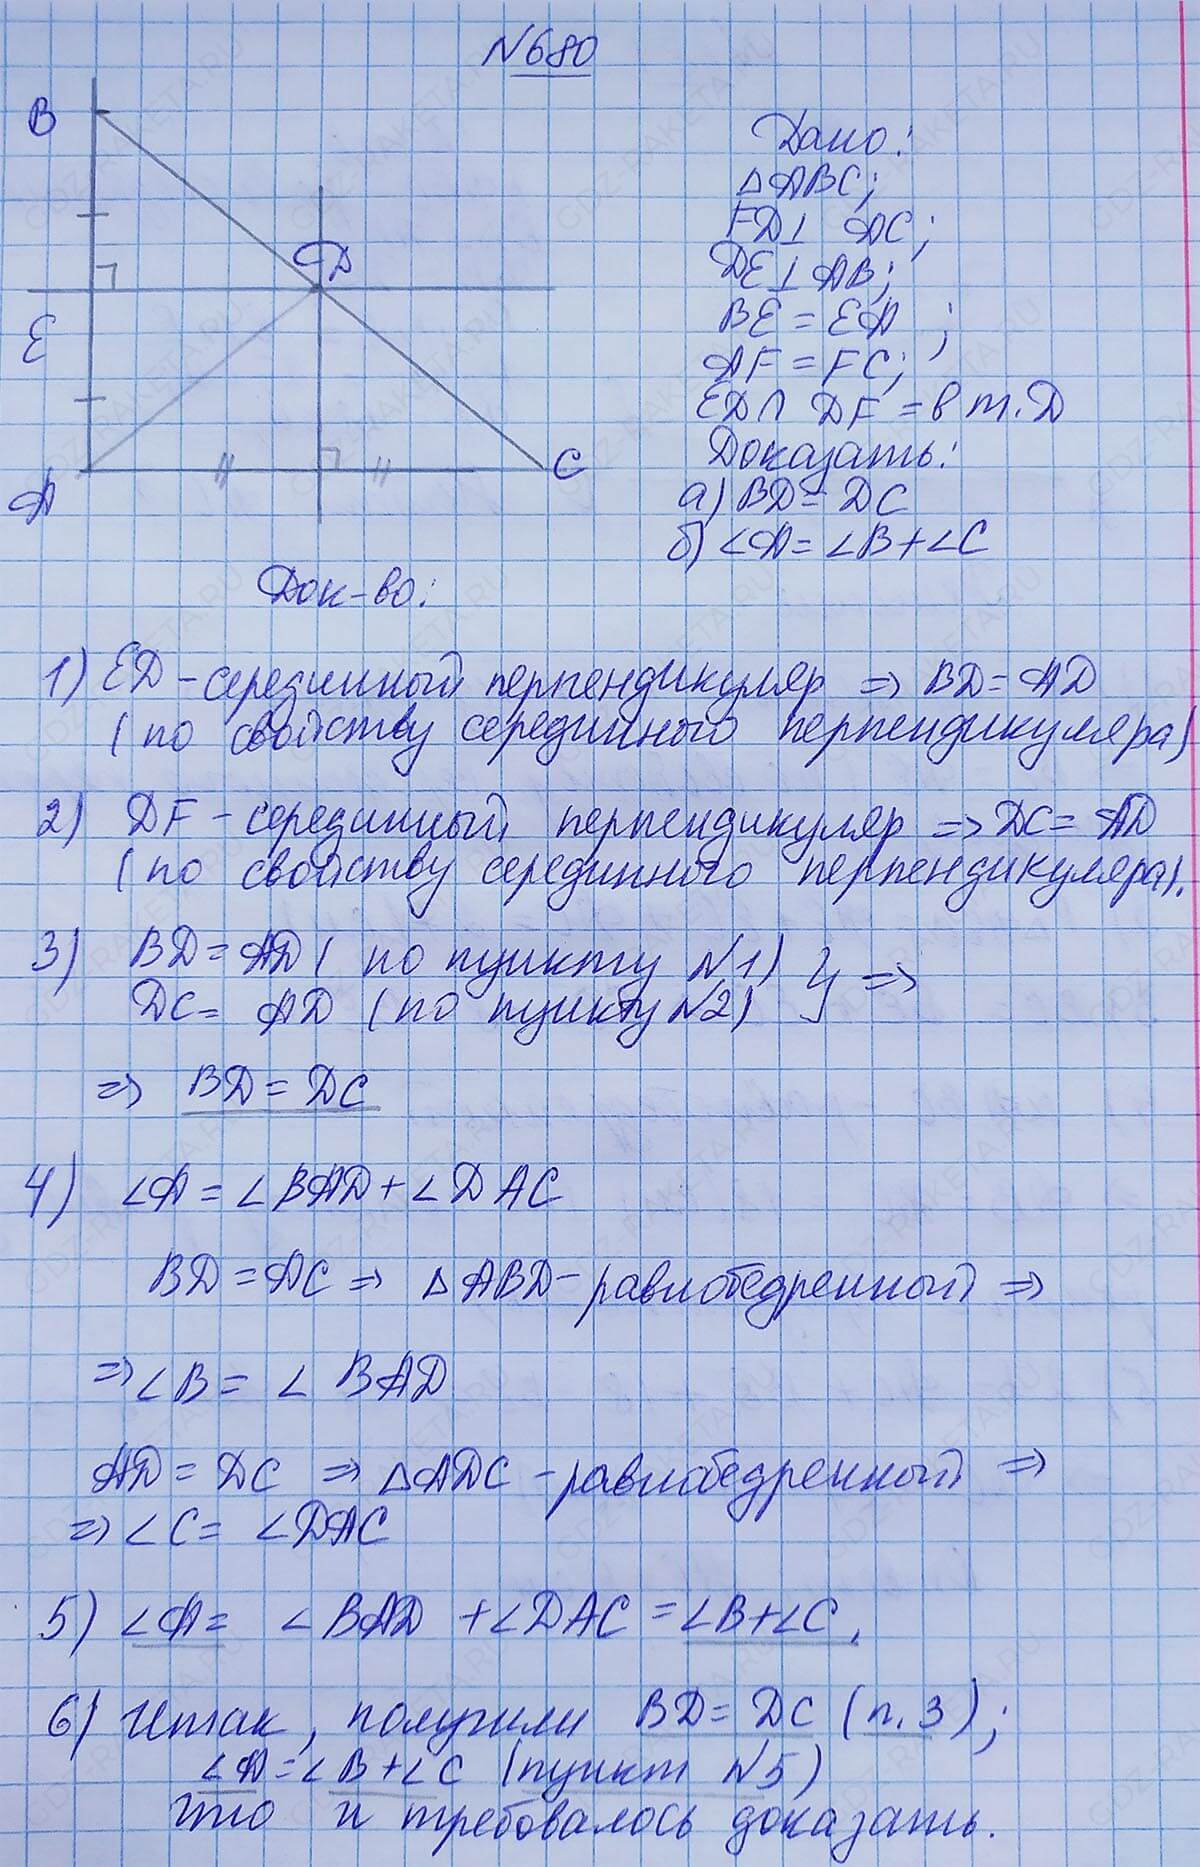 N680
B
D
E
A
C
Дано:
△ABC;
FD⊥ AC;
DE⊥AB;
BE = EA ;
AF = FC;
ED∩ DF = в т. D
Доказать:
а) BD = DC
б) ∠A = ∠B + ∠C
Док-во:
1) ED – серединный перпендикуляр => BD = AD
(по свойству серединного перпендикуляра)
2) DF – серединный перпендикуляр => DC = AD
(по свойству серединного перпендикуляра).
3) BD = AD (по пункту N1) } =>
DC = AD (по пункту N2)
=> BD = DC
4) ∠A = ∠BAD + ∠DAC
BD = DC => △ABD – равнобедренный =>
=> ∠B = ∠ BAD
AD = DC => △ADC – равнобедренный =>
=> ∠C = ∠DAC
5) ∠A = ∠BAD + ∠DAC = ∠B + ∠C.
6) Итак, получили BD = DC (п. 3);
∠A = ∠B + ∠C (пункт N5)
что и требовалось доказать.